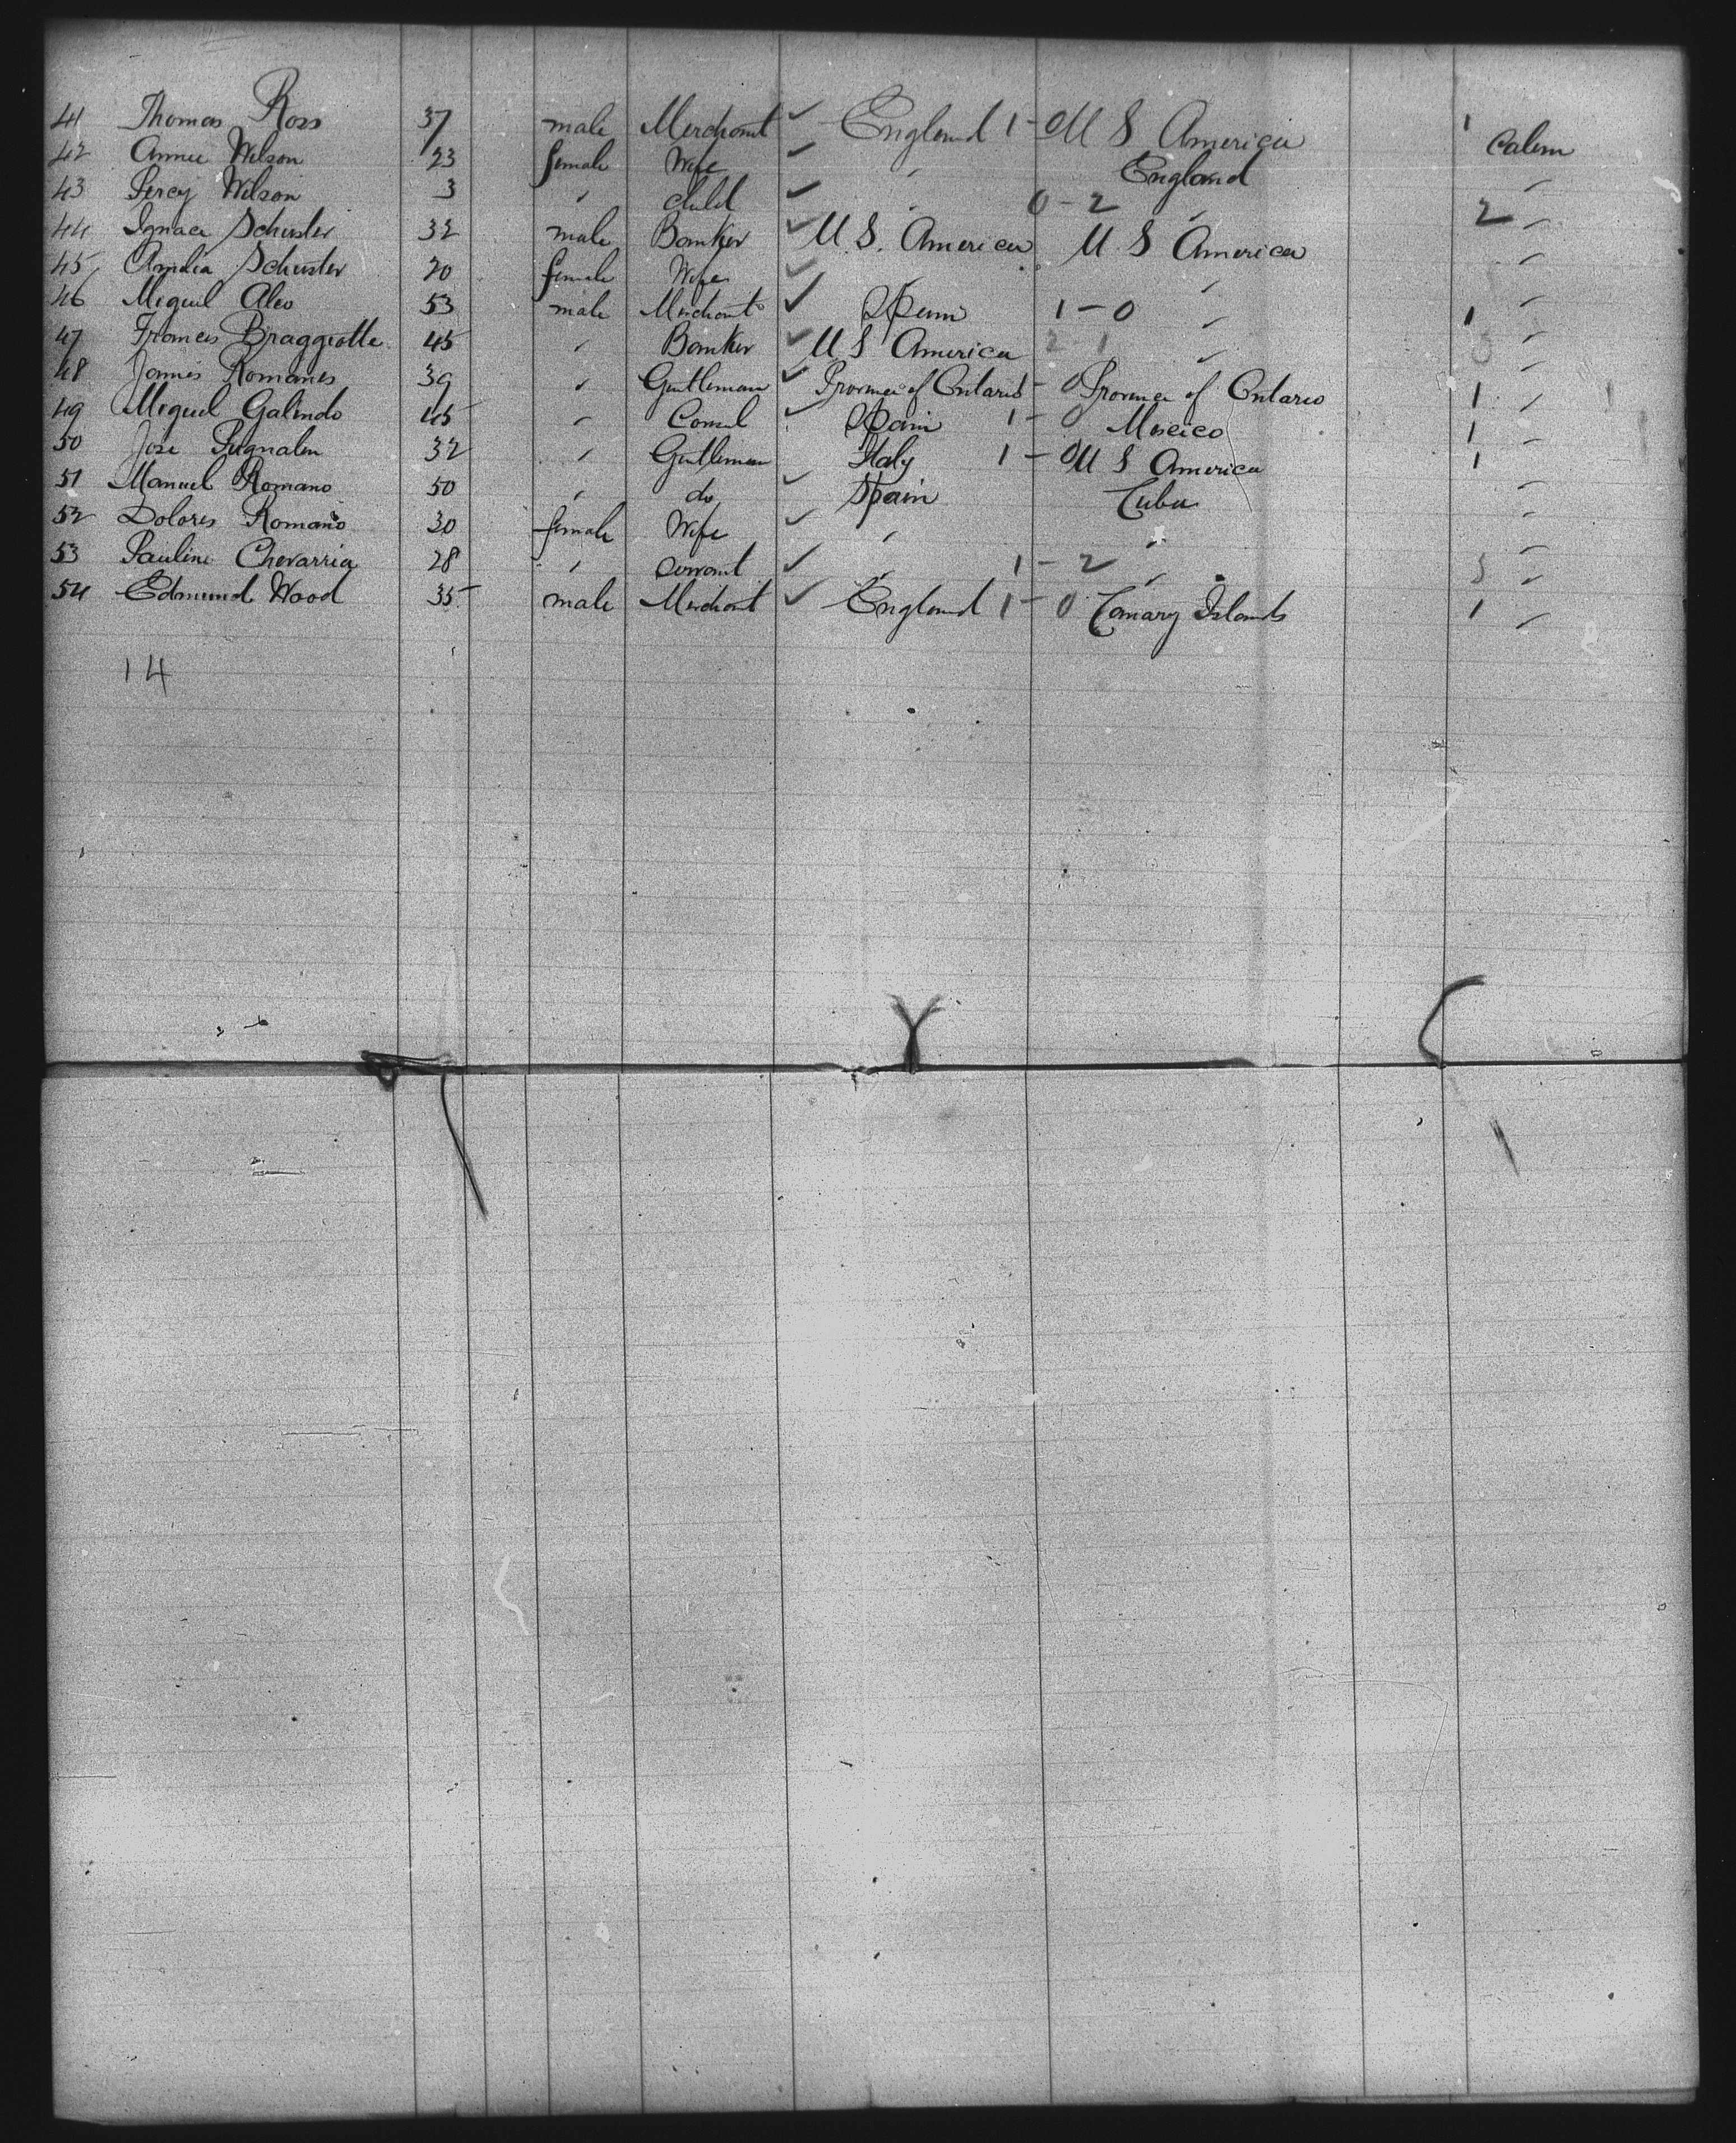 41 Thomas Ross 37 male Merchant ✓ England 1-0 U S America 1 Cabin
42 Annie Wilson 23 female Wife ✓ " England "
43 Percy Wilson 3 " child ✓ " 0-2 " 2 "
44 Ignace Schuster 32 male Banker ✓ U.S. America U S America "
45 Amelia Schuster 20 female Wife ✓ " "
46 Miguel Aleo 53 male Merchant ✓ Spain 1-0 " 1 "
47 Frances Braggiotte 45 " Banker ✓ U S America 2-1 " 3 "
48 James Romanes 39 " Gentleman ✓ Province of Ontario - 0 Province of Ontario 1 "
49 Miguel Galindo 45 " Consul ✓ Spain 1-0 Mexico 1 "
50 Jose Pugnalin 32 " Gentleman Italy 1-0 U S America 1 "
51 Manuel Romano 50 " do ✓ Spain Cuba "
52 Dolores Romano 30 female Wife ✓ " " "
53 Pauline Chevarria 28 " servant ✓ " 1-2 " 3 "
54 Edmund Wood 35 male Merchant ✓ England 1-0 Canary Islands 1 "
14